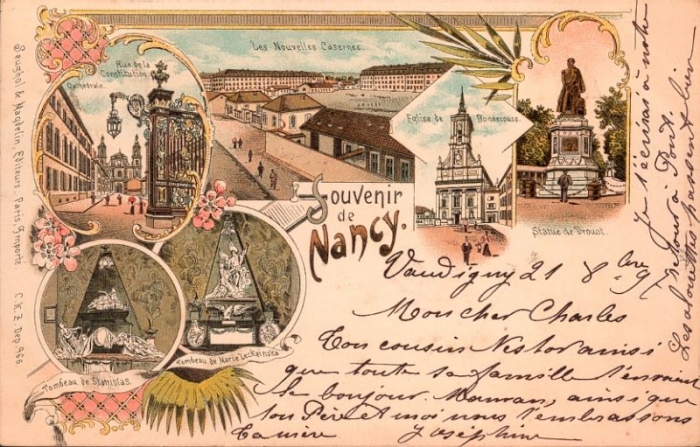 Les Nouvelles Casernes.
Rue de la
Constitution.
Cathédrale.
Eglise de Bonsecours.
Statue de Drouot.
Souvenir
de
Nancy.
Tombeau de Stanislas.
Tombeau de Maria Leckzinska
Bergeret & Nagdelin, Editeurs - Paris,
C.K.Z. Dep. 966.
Vaudigny 21 8bre 97
Mon cher Charles
Ton cousin Nestor ainsi
que toute sa famille t'envoie
le bonjour. Maman, ainsi que
ton Père et moi nous t'embrassons
Ta mère Joséphine
Je t'écrirai à notre
retour à Pont.